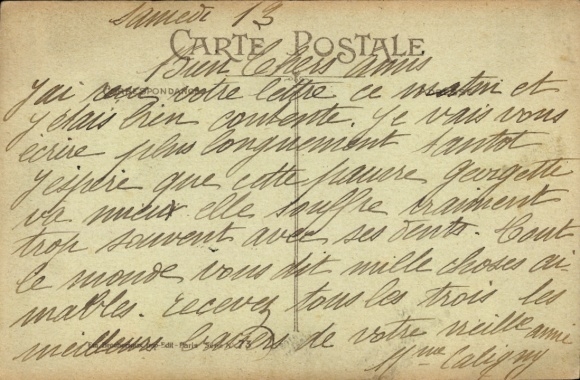 Samedi 13
CARTE POSTALE
Bien Chers amis
CORRESPONDANCE
J'ai reçu votre lettre ce matin et
j'étais bien contente. Je vais vous
écrire plus longuement tantot
J'espère que cette pauvre Georgette
va mieux elle souffre vraiment
trop souvent avec ses dents. Tout
le monde vous dit mille choses ai-
mables. recevez tous les trois les
meilleurs baisers de votre vieille amie
Mme Caligny